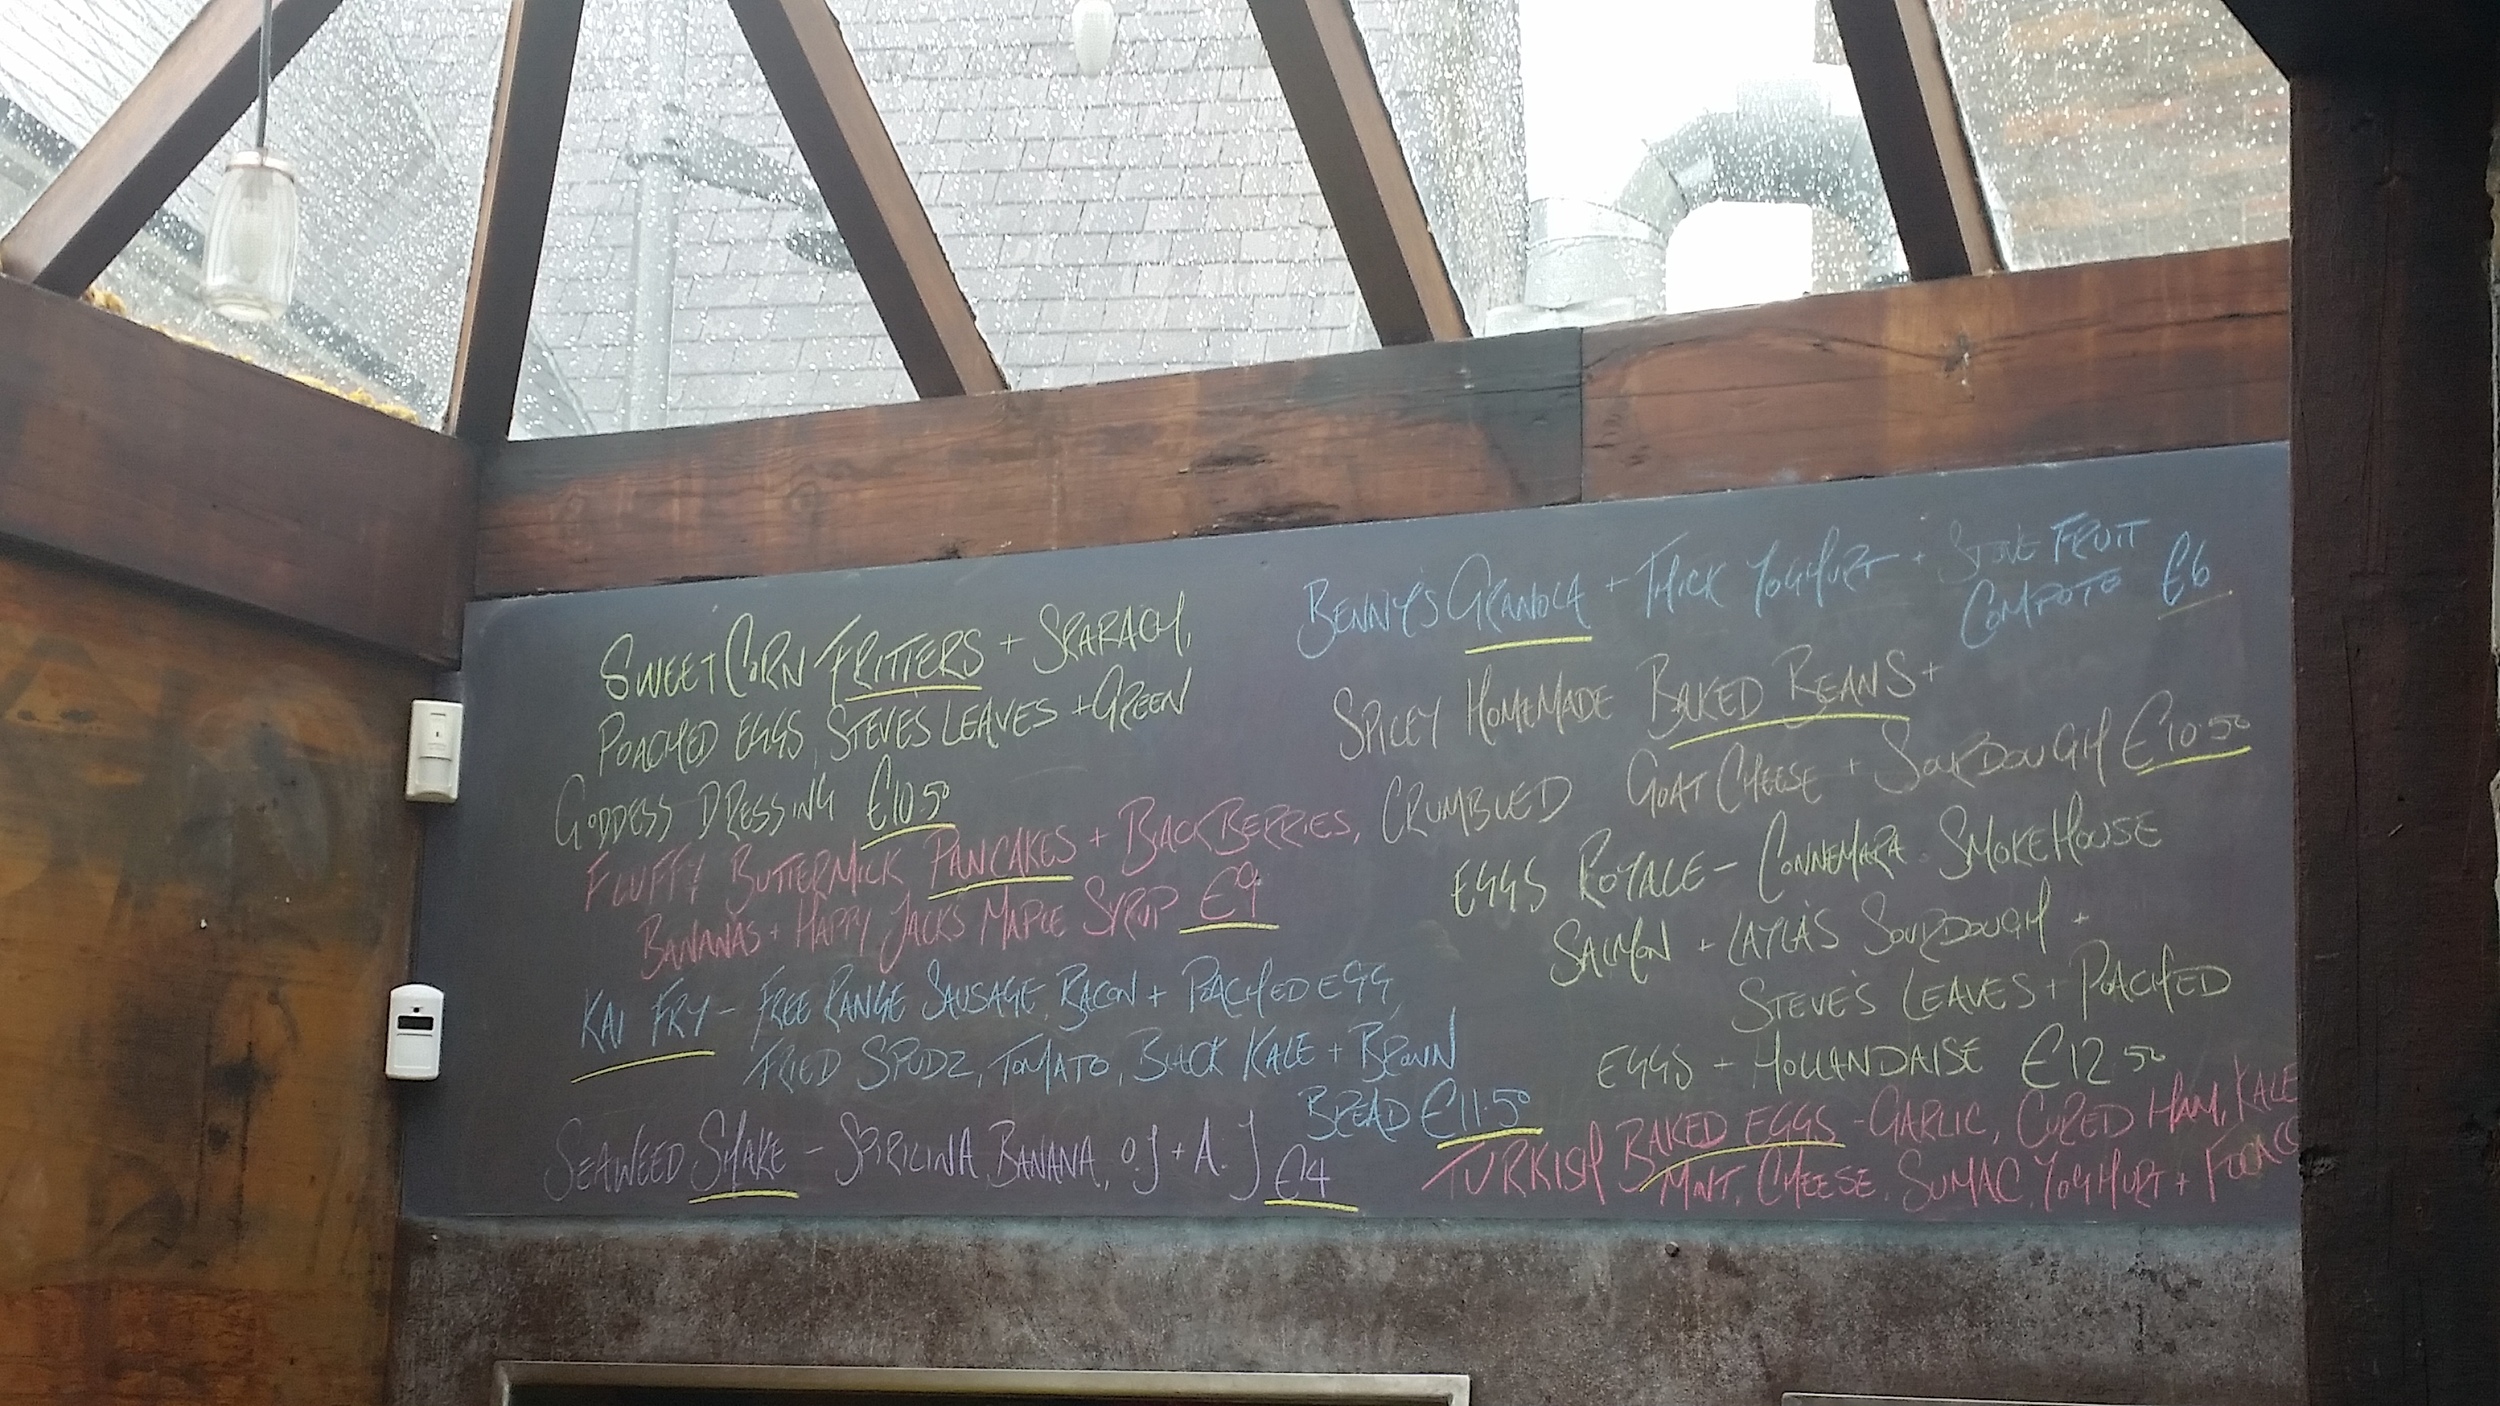 SWEETCORN FRITTERS + SRARACH,
POACHED EGGS, STEVES LEAVES + GREEN
GODDESS DRESSING €10.50
FLUFFY BUTTERMILK PANCAKES + BLACKBERRIES,
BANANAS + HAPPY JACKS MAPLE SYRUP €9
KAI FRY - FREE RANGE SAUSAGE, BACON + POACHED EGG,
FRIED SPUDZ, TOMATO, BLACK KALE + BROWN
BREAD €11.50
SEAWEED SHAKE - SPIRILINA, BANANA, O.J + A.J €4
BENNY'S GRANOLA + THICK YOGHURT + STONE FRUIT
COMPOTO €6
SPICEY HOMEMADE BAKED BEANS +
CRUMBLED GOAT CHEESE + SOURDOUGH €10.50
EGGS ROYALE - CONNEMARA SMOKEHOUSE
SALMON + LAYLA'S SOURDOUGH +
STEVE'S LEAVES + POACHED
EGGS + HOLLANDAISE €12.50
TURKISH BAKED EGGS - GARLIC, CURED HAM, KALE
MINT, CHEESE, SUMAC, YOGHURT +